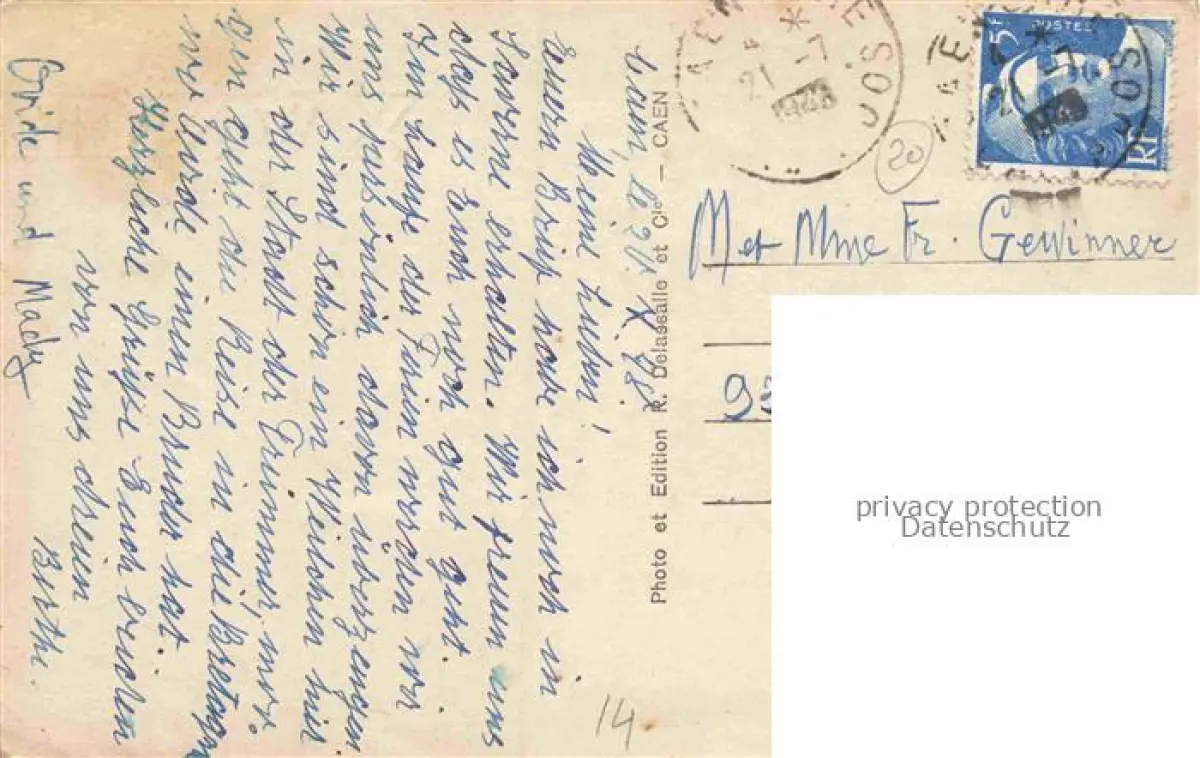 Caen, le 21. X. 48.
Meine Lieben!
Euern Brief habe ich noch in
Saverne erhalten. Wir freuen uns
dass es Euch noch gut geht.
Im Laufe der Ferien würden wir
uns persönlich davon überzeugen.
Wir sind schon ein Weilchen hier
in der Stadt der Trümmer, mor
gen geht die Reise in die Bretagne
wo einen Bruder hat.
Herzliche Grüße Euch beiden
von uns dreien
Berthe.
und Mady
Photo et Edition R. Delassalle et Cie — CAEN
CAEN
21 -7
1948
5F
POSTES
RF
20
M et Mme Fr. Gewinner
93
14
privacy protection
Datenschutz